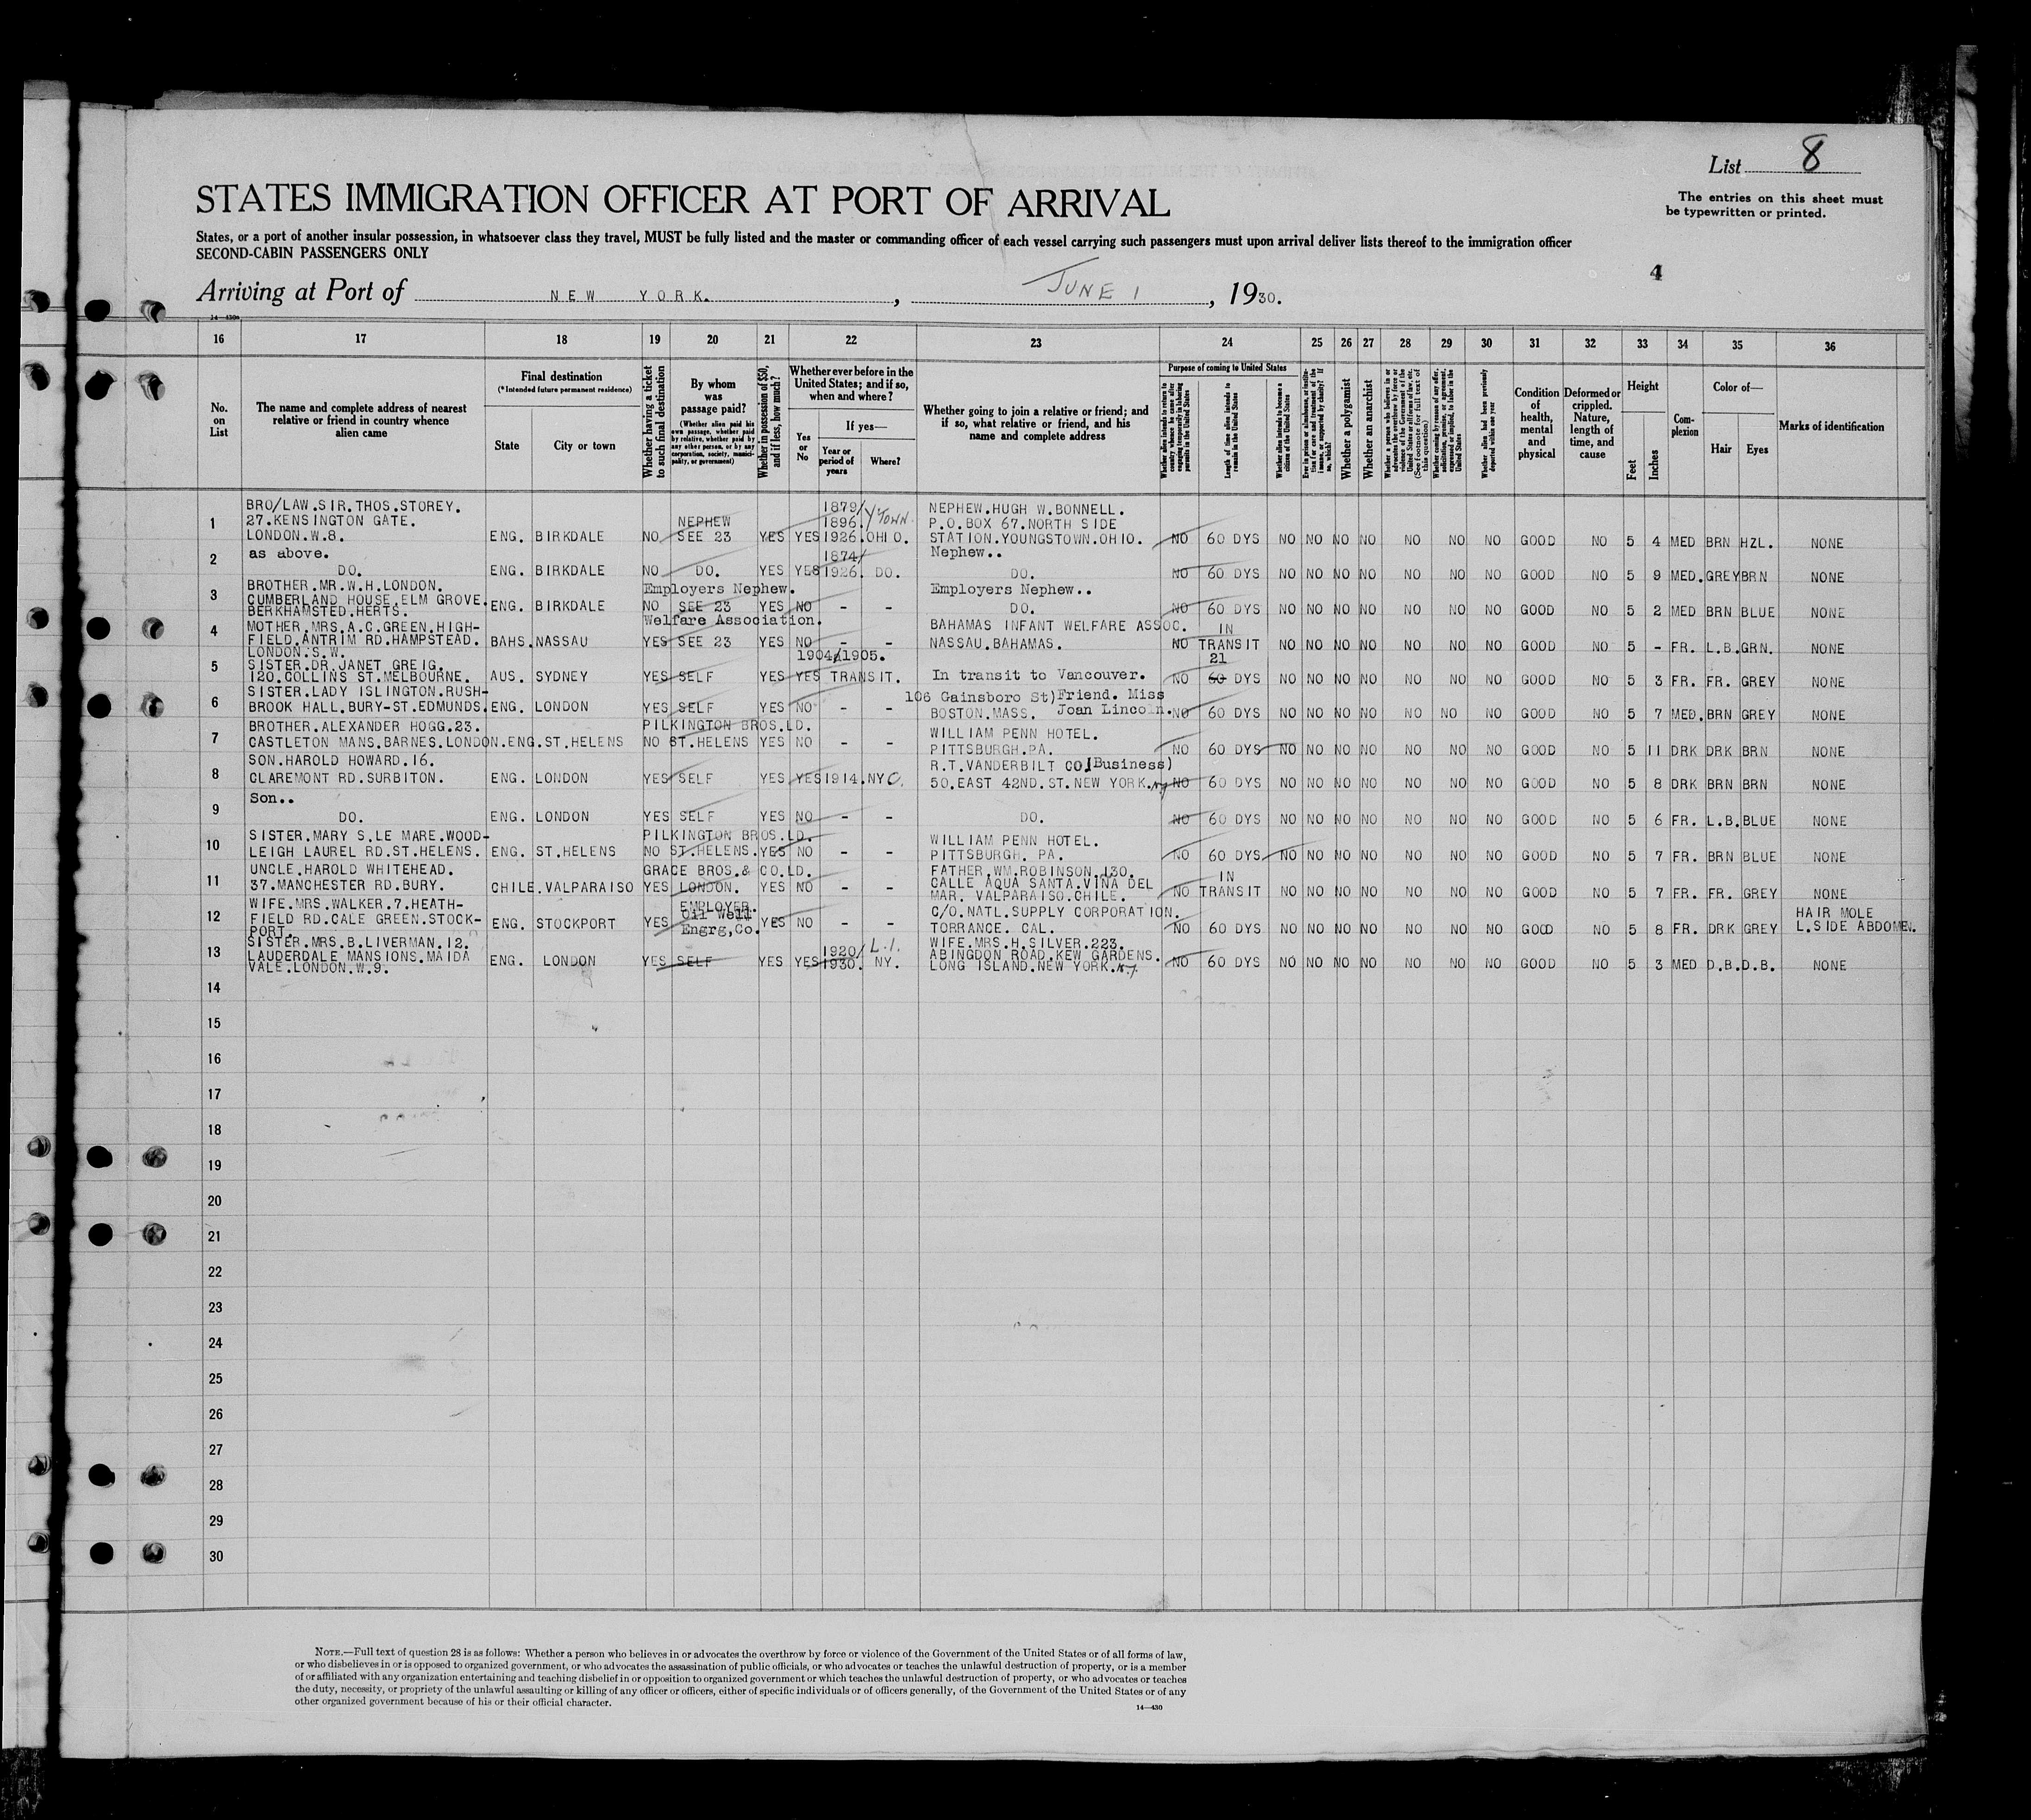 List 8
The entries on this sheet must
be typewritten or printed.
STATES IMMIGRATION OFFICER AT PORT OF ARRIVAL
States, or a port of another insular possession, in whatsoever class they travel, MUST be fully listed and the master or commanding officer of each vessel carrying such passengers must upon arrival deliver lists thereof to the immigration officer
SECOND-CABIN PASSENGERS ONLY
4
Arriving at Port of NEW YORK. , JUNE 1 , 1930.
16 17 18 19 20 21 22 23 24 25 26 27 28 29 30 31 32 33 34 35 36
No. on List
The name and complete address of nearest relative or friend in country whence alien came
Final destination
(*Intended future permanent residence)
State City or town
Whether having a ticket to such final destination
By whom was passage paid?
(Whether alien paid his own passage, whether paid by relative, whether paid by any other person, or by any corporation, society, municipality, or government)
Whether in possession of $50, and if less, how much?
Whether ever before in the United States; and if so, when and where?
Yes or No
If yes—
Year or period of years
Where?
Whether going to join a relative or friend; and if so, what relative or friend, and his name and complete address
Purpose of coming to United States
Length of time alien intends to remain in the United States
Whether alien intends to become a citizen of the United States
Whether a polygamist
Whether an anarchist
Condition of health, mental and physical
Deformed or crippled. Nature, length of time, and cause
Height
Feet Inches
Complexion
Color of—
Hair Eyes
Marks of identification
1 BRO/LAW.SIR.THOS.STOREY. 1879/ NEPHEW.HUGH W.BONNELL.
27.KENSINGTON GATE. NEPHEW 1896. Y'TOWN. P.O.BOX 67.NORTH SIDE
LONDON.W.8. ENG. BIRKDALE NO SEE 23 YES YES 1926.OHIO. STATION.YOUNGSTOWN.OHIO. NO 60 DYS NO NO NO NO NO NO NO GOOD NO 5 4 MED BRN HZL. NONE
2 as above. 1874/ Nephew..
DO. ENG. BIRKDALE NO DO. YES YES 1926. DO. DO. NO 60 DYS NO NO NO NO NO NO NO GOOD NO 5 9 MED. GREY BRN NONE
3 BROTHER.MR.W.H.LONDON. Employers Nephew. Employers Nephew..
CUMBERLAND HOUSE.ELM GROVE. ENG. BIRKDALE NO SEE 23 YES NO - - DO. NO 60 DYS NO NO NO NO NO NO NO GOOD NO 5 2 MED BRN BLUE NONE
BERKHAMSTED.HERTS.
4 MOTHER.MRS.A.C.GREEN.HIGH- Welfare Association. BAHAMAS INFANT WELFARE ASSOC. IN
FIELD.ANTRIM RD.HAMPSTEAD. BAHS. NASSAU YES SEE 23 YES NO - - NASSAU.BAHAMAS. NO TRANSIT NO NO NO NO NO NO NO GOOD NO 5 - FR. L.B. GRN. NONE
LONDON.S.W.
5 SISTER.DR.JANET GREIG. 1904/1905. 21
120.COLLINS ST.MELBOURNE. AUS. SYDNEY YES SELF YES YES TRANSIT. In transit to Vancouver. NO 60 DYS NO NO NO NO NO NO NO GOOD NO 5 3 FR. FR. GREY NONE
6 SISTER.LADY ISLINGTON.RUSH- 106 Gainsboro St) Friend. Miss
BROOK HALL.BURY-ST.EDMUNDS. ENG. LONDON YES SELF YES NO - - BOSTON.MASS. Joan Lincoln. NO 60 DYS NO NO NO NO NO NO NO GOOD NO 5 7 MED. BRN GREY NONE
7 BROTHER.ALEXANDER HOGG.23. PILKINGTON BROS.LD. WILLIAM PENN HOTEL.
CASTLETON MANS.BARNES.LONDON. ENG. ST.HELENS NO ST.HELENS YES NO - - PITTSBURGH.PA. NO 60 DYS NO NO NO NO NO NO NO GOOD NO 5 11 DRK DRK BRN NONE
8 SON.HAROLD HOWARD.16. R.T.VANDERBILT CO.(Business)
CLAREMONT RD.SURBITON. ENG. LONDON YES SELF YES YES 1914. NYC. 50.EAST 42ND.ST.NEW YORK. NY NO 60 DYS NO NO NO NO NO NO NO GOOD NO 5 8 DRK BRN BRN NONE
9 Son..
DO. ENG. LONDON YES SELF YES NO - - DO. NO 60 DYS NO NO NO NO NO NO NO GOOD NO 5 6 FR. L.B. BLUE NONE
10 SISTER.MARY S.LE MARE.WOOD- PILKINGTON BROS.LD. WILLIAM PENN HOTEL.
LEIGH LAUREL RD.ST.HELENS. ENG. ST.HELENS NO ST.HELENS. YES NO - - PITTSBURGH. PA. NO 60 DYS NO NO NO NO NO NO NO GOOD NO 5 7 FR. BRN BLUE NONE
11 UNCLE.HAROLD WHITEHEAD. GRACE BROS.& CO.LD. FATHER.WM.ROBINSON.130. IN
37.MANCHESTER RD.BURY. CHILE. VALPARAISO YES LONDON. YES NO - - CALLE AQUA SANTA.VINA DEL NO TRANSIT NO NO NO NO NO NO NO GOOD NO 5 7 FR. FR. GREY NONE
MAR. VALPARAISO.CHILE.
12 WIFE.MRS.WALKER.7.HEATH- EMPLOYER. C/O.NATL.SUPPLY CORPORATION. HAIR MOLE
FIELD RD.CALE GREEN.STOCK- ENG. STOCKPORT YES Oil Well Engrg,Co. YES NO - - TORRANCE. CAL. NO 60 DYS NO NO NO NO NO NO NO GOOD NO 5 8 FR. DRK GREY L.SIDE ABDOMEN.
PORT.
13 SISTER.MRS.B.LIVERMAN.12. 1920/ L.I. WIFE.MRS.H.SILVER.223.
LAUDERDALE MANSIONS.MAIDA ENG. LONDON YES SELF YES YES 1930. NY. ABINGDON ROAD.KEW GARDENS. NO 60 DYS NO NO NO NO NO NO NO GOOD NO 5 3 MED D.B. D.B. NONE
VALE.LONDON.W.9. LONG ISLAND.NEW YORK. N.Y.
14
15
16
17
18
19
20
21
22
23
24
25
26
27
28
29
30
NOTE.—Full text of question 28 is as follows: Whether a person who believes in or advocates the overthrow by force or violence of the Government of the United States or of all forms of law,
or who disbelieves in or is opposed to organized government, or who advocates the assassination of public officials, or who advocates or teaches the unlawful destruction of property, or is a member
of or affiliated with any organization entertaining and teaching disbelief in or opposition to organized government or which teaches the unlawful destruction of property, or who advocates or teaches
the duty, necessity, or propriety of the unlawful assaulting or killing of any officer or officers, either of specific individuals or of officers generally, of the Government of the United States or of any
other organized government because of his or their official character.
14—430